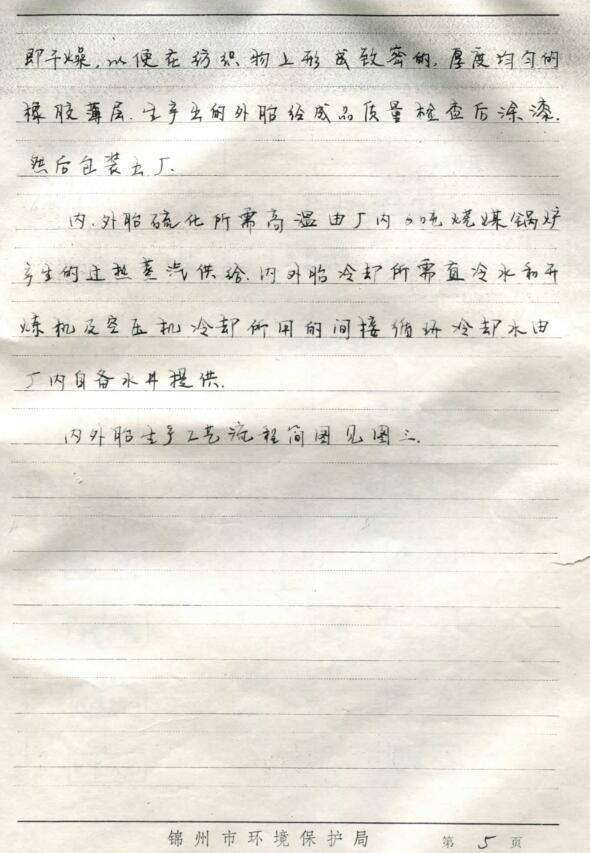 即干燥,以便在纺织物上形成致密的,厚度均匀的
橡胶薄层.生产出的外胎经成品质量检查后涂漆.
然后包装出厂.
内.外胎硫化所需高温由厂内20吨烧煤锅炉
产生的过热蒸汽供给.内外胎冷却所需直冷水和开
炼机及空压机冷却所用的间接循环冷却水由
厂内自备水井提供.
内外胎生产工艺流程简图见图三.
锦州市环境保护局 第 5 页